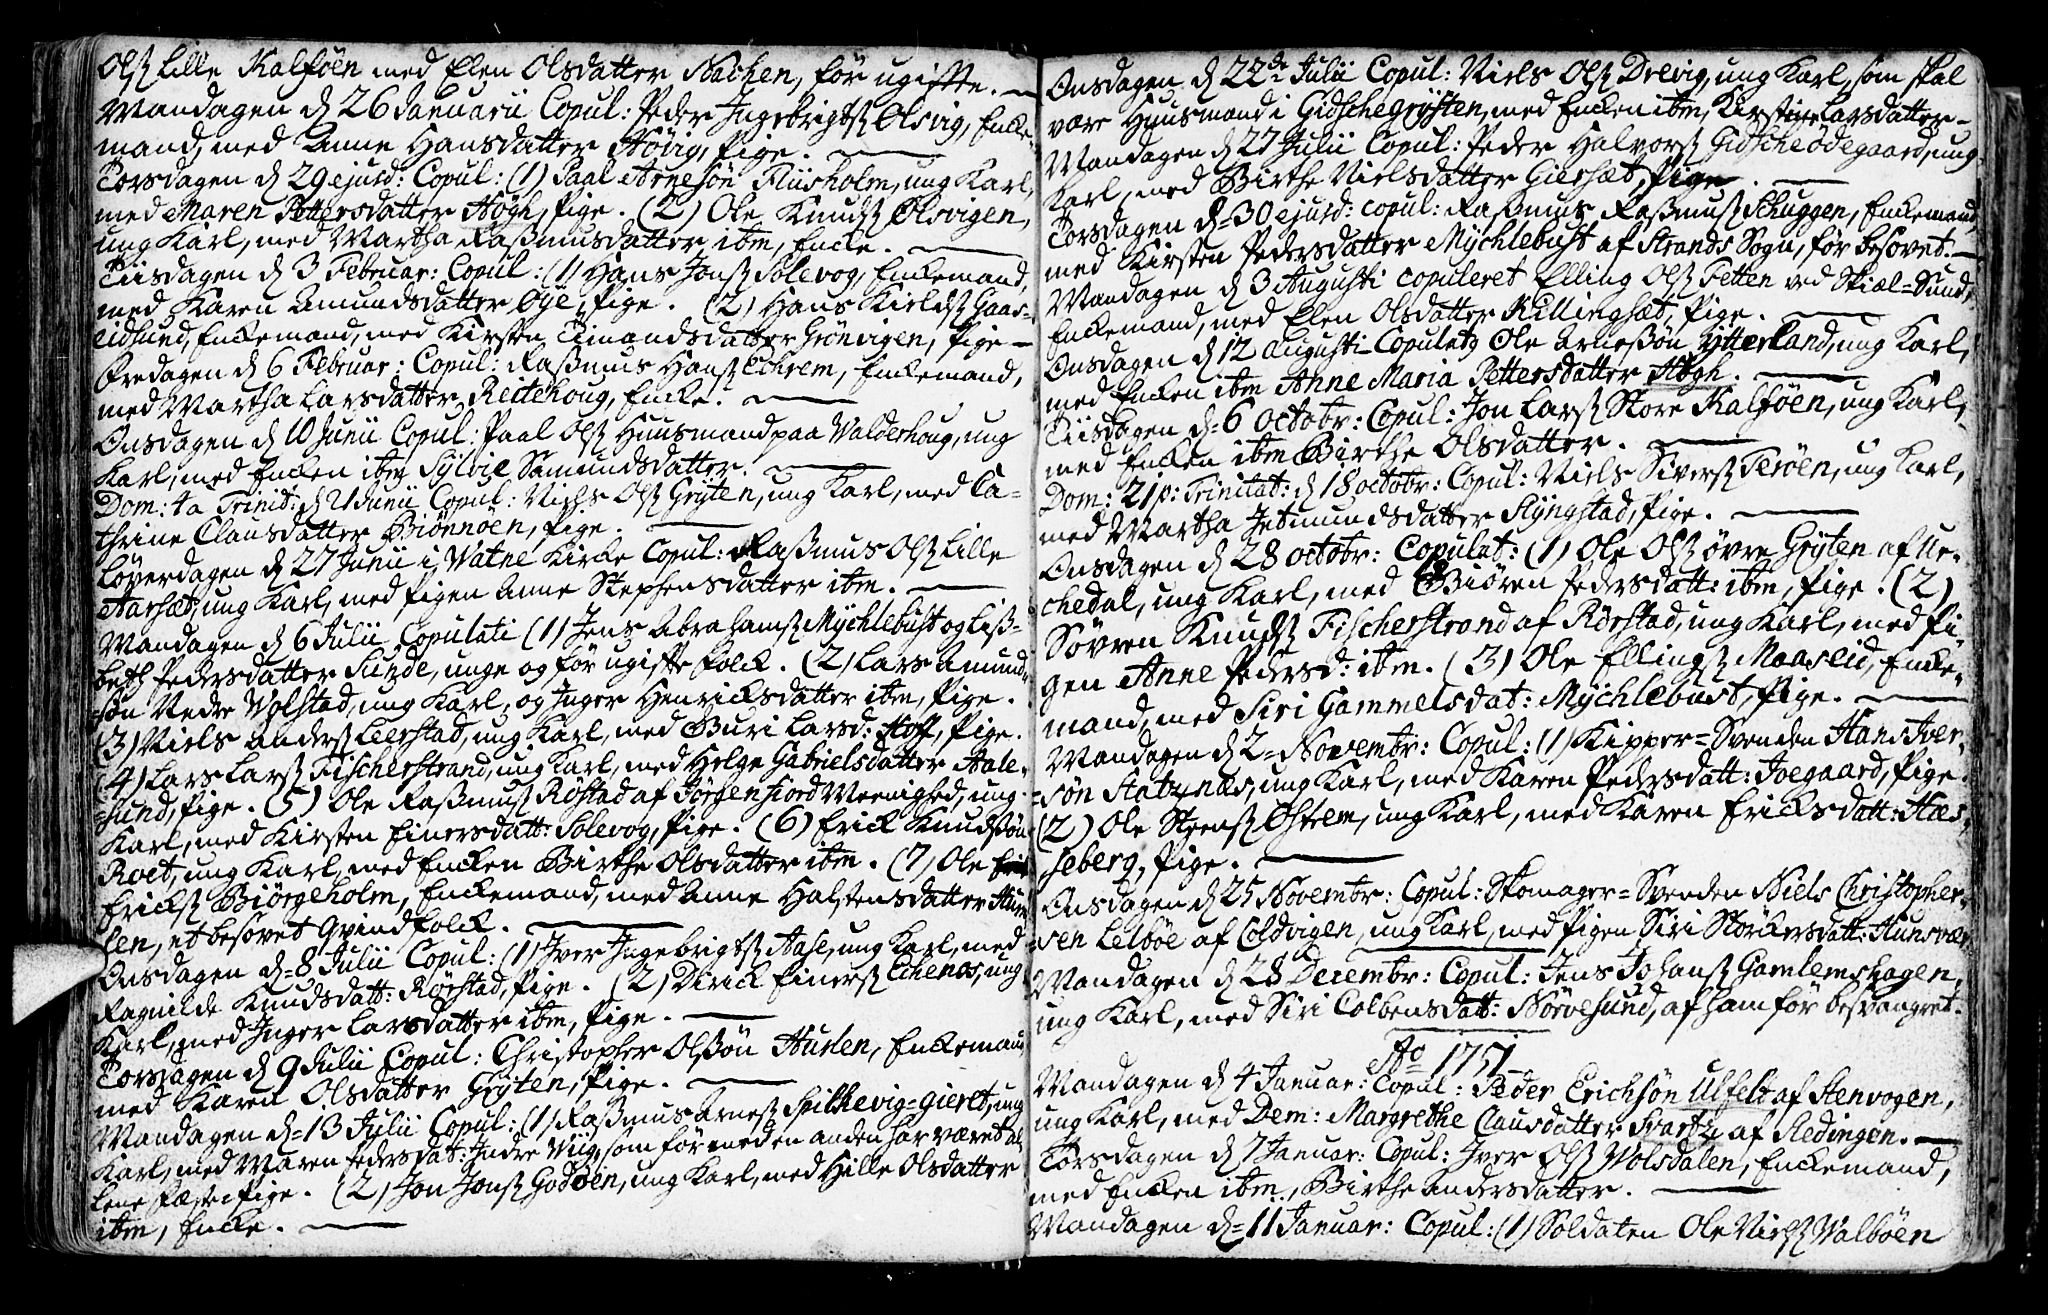 Olsz Lille Kalføen med Elen Olsdatter Nachen, før ugifte. —
Mandagen d 26 Januarii Copul: Peder Ingebrigtsz Olsvig, Encke-
mand, med Anne Hansdatter Høvig, Pige. —
Torsdagen d 29 ejusd: Copul: (1) Paal Arnesøn Fliisholm, ung Karl,
med Maren Pettersdatter Høgh, Pige. (2) Ole Knudsz Olsvigen,
ung Karl, med Martha Rasmusdatter ibm, Encke. —
Tiisdagen d 3 Februar: Copul: (1) Hans Jonsz Solevog, Enckemand,
med Karen Amundsdatter Øye, Pige. (2) Hans Kieldsz Gaas-
eidsund, Enckemand, med Kirsten Timandsdatter Grønvigen, Pige —
Fredagen d 6 Februar: Copul: Rasmus Hansz Echrem, Enckemand,
med Martha Larsdatter Reitehoug, Encke. —
Onsdagen d 10 Junii Copul: Paal Olsz Huusmand paa Walderhoug, ung
Karl, med Encken ibm Sylvie Samundsdatter. —
Dom: 4ta Trinit: d 21 Junii Copul: Niels Olsz Gryten, ung Karl, med Ca-
thrine Clausdatter Biønnøen, Pige. —
Løverdagen d 27 Junii i Vatne Kirke Copul: Rasmus Olsz Lille
Aarsæt, ung Karl, med Pigen Anne Stephensdatter ibm. —
Mandagen d 6 Julii Copulati (1) Jens Abrahamsz Mychlebust og Lis-
beth Pedersdatter Sunde, unge og før ugifte folck. (2) Lars Amund-
søn Nedre Wolstad, ung Karl, og Inger Henricksdatter ibm, Pige.
(3) Niels Andersz Leerstad, ung Karl, med Guri Larsd: Hoff, Pige.
(4) Lars Larsz Fischerstrand, ung Karl, med Helge Gabrielsdatter Aale-
sund, Pige. (5) Ole Rasmusz Røstad af Jørgenfiord Meenighed, ung
Karl, med Kirsten Einersdatt: Solevog, Pige. (6) Erick Knudssøn
Roet, ung Karl, med Encken Birthe Olsdatter ibm. (7) Ole
Ericksz Biørgeholm, Enckemand, med Anne Halstensdatter Hur-
len, et besovet Qvindfolck. —
Onsdagen d 8 Julii Copul: (1) Iver Ingebrigtsz Aase, ung Karl, med
Ragnilde Knudsdatt: Rørstad, Pige. (2) Dirick Einersz Echenæs, ung
Karl, med Inger Larsdatter ibm, Pige. —
Torsdagen d 9 Julii Copul: Christopher Olssøn Hurlen, Enckemand
med Karen Olsdatter Gryten, Pige. —
Mandagen d 13 Julii Copul: (1) Rasmus Arnesz Spilkevig=gieret, ung
Karl, med Maren Pedersdat: Indre Viig, som før med en anden har været al-
lene fæstepige. (2) Jon Jonsz Godøen, ung Karl, med Hille Olsdatter
ibm, Encke. —
Onsdagen d 22de Julii Copul: Niels Olsz Drevig, ung Karl, som skal
være Huusmand i Gidschegrysten, med Encken ibm, Kirstine Larsdatter —
Mandagen d 27 Julii Copul: Peder Halvorsz Gidscheødegaard, ung
Karl, med Birthe Nielsdatter Giersæt, Pige. —
Torsdagen d 30 ejusd: copul: Rasmus Rasmusz Schuggen, Enckemand,
med Kirsten Pedersdatter Mychlebust af Strands Sogn, før besovet. —
Mandagen d 3 Augusti copuleret Elling Olsz Fetten ved Skiæl=Sund,
Enckemand, med Elen Olsdatter Killingsæt, Pige. —
Onsdagen d 12 Augusti Copulatz Ole Arnessøn Ytterland, ung Karl,
med Encken ibm Anne Maria Pettersdatter Høgh. —
Tiisdagen d 6 Octobr: Copul: Jon Larsz Store Kalføen, ung Karl,
med Encken ibm Birthe Olsdatter. —
Dom: 21 p: Trinitat: d 18 Octobr: Copul: Niels Siversz Terøen, ung Karl,
med Martha Jetmundsdatter Slyngstad, Pige. —
Onsdagen d 28 Octobr: Copulat: (1) Ole Olsz øvre Gryten af Ue-
chedal, ung Karl, med Biøren Pedersdatt: ibm, Pige. (2)
Søvren Knudsz Fischerstrand af Rørstad, ung Karl, med Pi-
gen Anne Pedersd: ibm. (3) Ole Ellingsz Maaseid, Encke-
mand, med Siri Gammelsdat: Mychlebust, Pige. —
Mandagen d 2 Novembr: Copul: (1) Kipper=Svenden Hans Iver-
søn Statznæs, ung Karl, med Karen Pedersdatt: Joegaard, Pige.
(2) Ole Steensz Østrem, ung Karl, med Karen Ericksdatt: Hæs-
seberg, Pige. —
Onsdagen d 25 Novembr: Copul: Skomager=Svenden Niels Christopher-
sen Lelbøe af Coldvigen, ung Karl, med Pigen Siri Størckersdatt: Hunsvær
Mandagen d 28 Decembr: Copul: Jens Johansz Gamlemshagen,
ung Karl, med Siri Colbensdatt: Nørvesund, af ham før besvangret.
Ao 1751
Mandagen d 4 Januar: Copul: Peder Erichsøn Ulfelt af Stenvogen,
ung Karl, med Dem: Margrethe Clausdatter Svartz af Hedingen. —
Torsdagen d 7 Januar: Copul: Iver Olsz Wolsdalen, Enckemand,
med Encken ibm, Birthe Andersdatter. —
Mandagen d 11 Januar: Copul: (1) Soldaten Ole Nielsz Walbøen